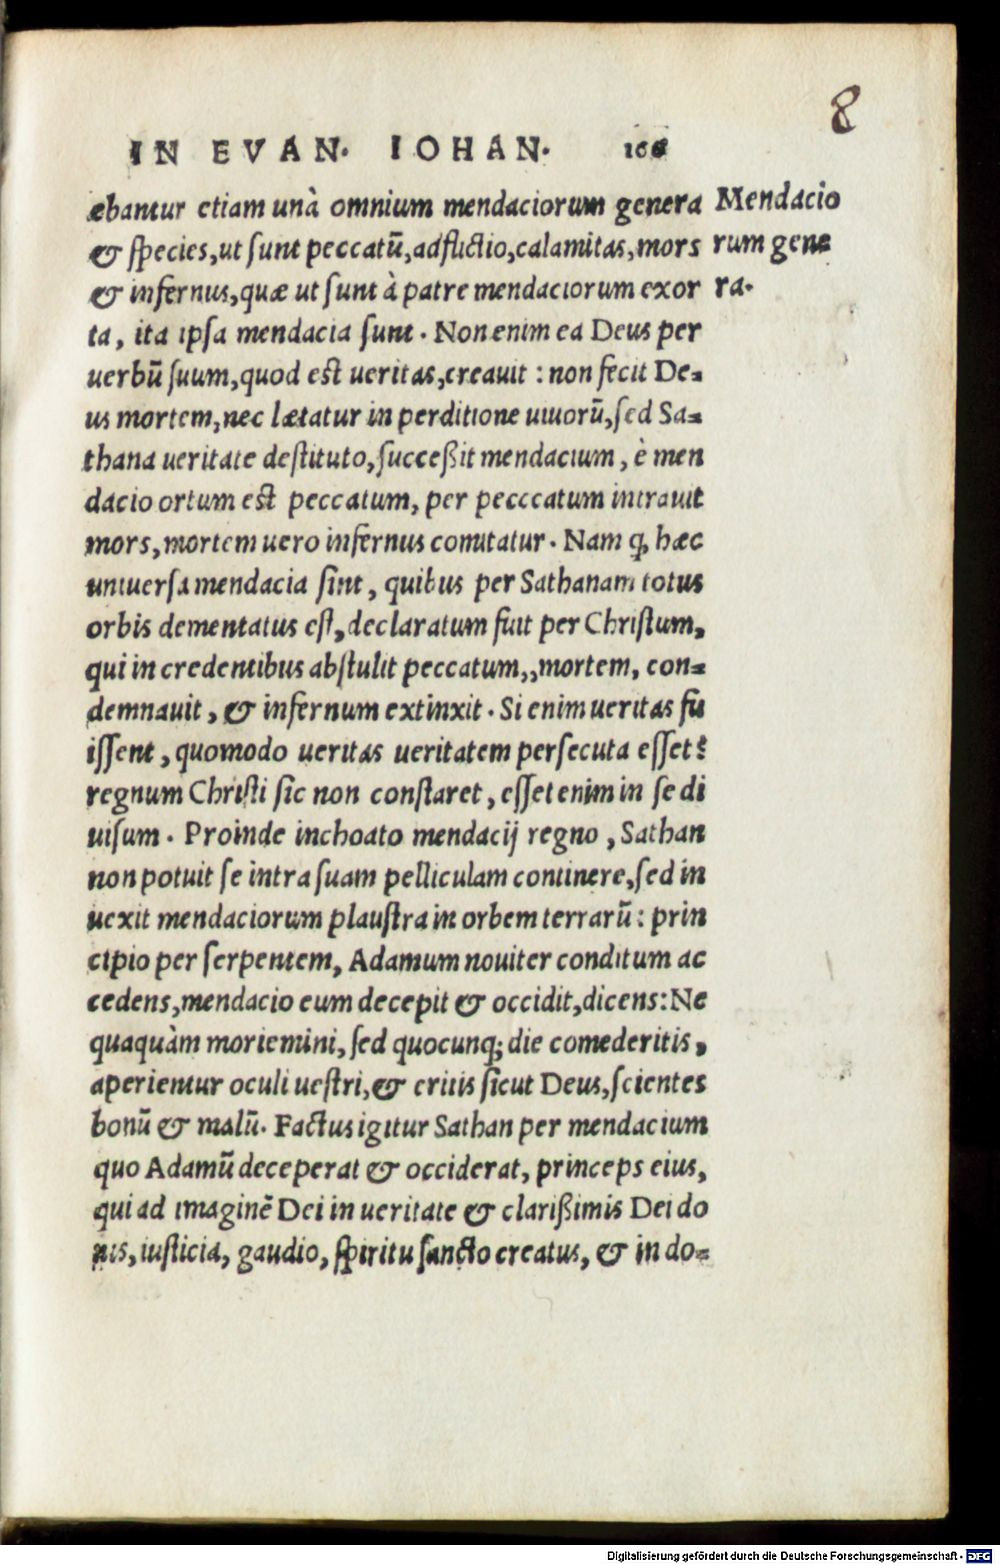 8
IN EVAN. IOHAN.
æbantur etiam unà omnium mendaciorum genera
& ſpecies, ut ſunt peccatũ, adflictio, calamitas, mors
& infernus, quæ ut ſunt à patre mendaciorum exor
ta, ita ipſa mendacia ſunt. Non enim ea Deus per
uerbũ ſuum, quod eſt ueritas, creauit: non fecit De=
us mortem, nec lætatur in perditione uiuorũ, ſed Sa=
thana ueritate deſtituto, ſucceßit mendacium, è men
dacio ortum eſt peccatum, per pecccatum intrauit
mors, mortem uero infernus comitatur. Nam ꝙ hæc
uniuerſa mendacia ſint, quibus per Sathanam totus
orbis dementatus eſt, declaratum fuit per Chriſtum,
qui in credentibus abſtulit peccatum,, mortem, con=
demnauit, & infernum extinxit. Si enim ueritas fu
iſſent, quomodo ueritas ueritatem perſecuta eſſet?
regnum Chriſti ſic non conſtaret, eſſet enim in ſe di
uiſum. Proinde inchoato mendacij regno, Sathan
non potuit ſe intra ſuam pelliculam continere, ſed in
uexit mendaciorum plauſtra in orbem terrarũ: prin
cipio per ſerpentem, Adamum nouiter conditum ac
cedens, mendacio eum decepit & occidit, dicens: Ne
quaquàm moriemini, ſed quocunq; die comederitis,
aperientur oculi ueſtri, & eritis ſicut Deus, ſcientes
bonũ & malũ. Factus igitur Sathan per mendacium
quo Adamũ deceperat & occiderat, princeps eius,
qui ad imaginẽ Dei in ueritate & clarißimis Dei do
nis, iuſticia, gaudio, ſpiritu ſancto creatus, & in do=
Mendacio
rum gene
ra.
Digitalisierung gefördert durch die Deutsche Forschungsgemeinschaft - DFG